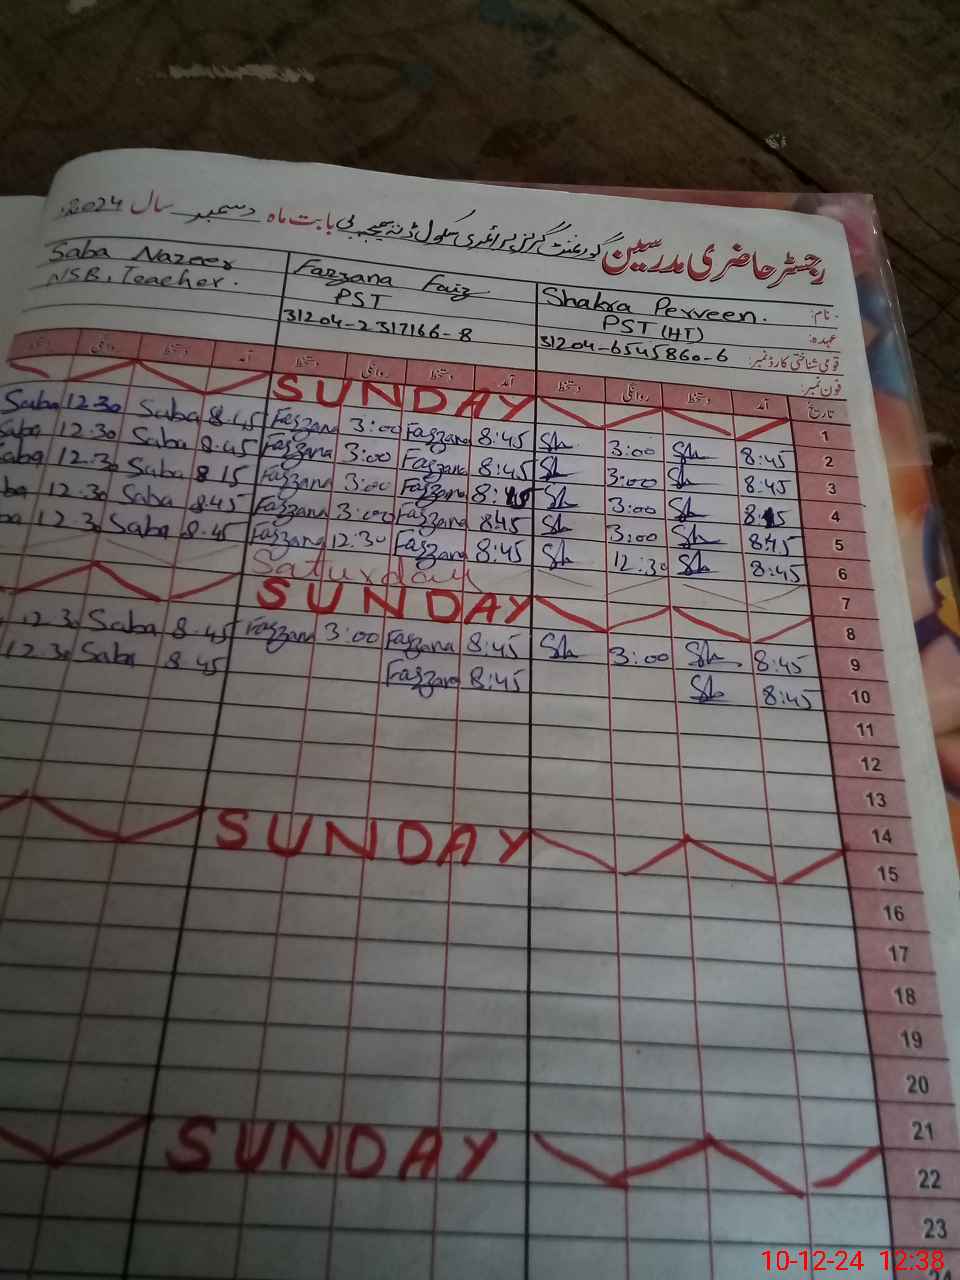 رجسٹر حاضری مدرسین گورنمنٹ گرلز پرائمری سکول بابت ماہ دسمبر سال 2024
نام: Shakra Perveen. Fazzana Faiz Saba Nazeer
عہدہ: PST (HT) PST NSB, Teacher.
قومی شناختی کارڈ نمبر: 31204-6545860-6 31204-2317166-8
فون نمبر:
تاریخ آمد دستخط روانگی دستخط آمد دستخط روانگی دستخط آمد دستخط روانگی دستخط
1 SUNDAY
2 8:45 Sh 3:00 Sh 8:45 Fazzana 3:00 Fazzana 8.45 Saba 12.30 Saba
3 8:45 Sh 3:00 Sh 8:45 Fazzana 3:00 Fazzana 8.45 Saba 12.30 Saba
4 8:45 Sh 3:00 Sh 8:45 Fazzana 3:00 Fazzana 8.15 Saba 12.30 Saba
5 8:45 Sh 3:00 Sh 8:45 Fazzana 3:00 Fazzana 8.45 Saba 12.30
6 8:45 Sh 12:30 Sh 8:45 Fazzana 12:30 Fazzana 8.45 Saba 12.30
7 Saturday
8 SUNDAY
9 8:45 Sh 3:00 Sh 8:45 Fazzana 3:00 Fazzana 8.45 Saba 12.30
10 8:45 Sh 8:45 Fazzana 8.45 Saba 12.30
11
12
13
14
15 SUNDAY
16
17
18
19
20
21
22 SUNDAY
23
24
10-12-24 12:38